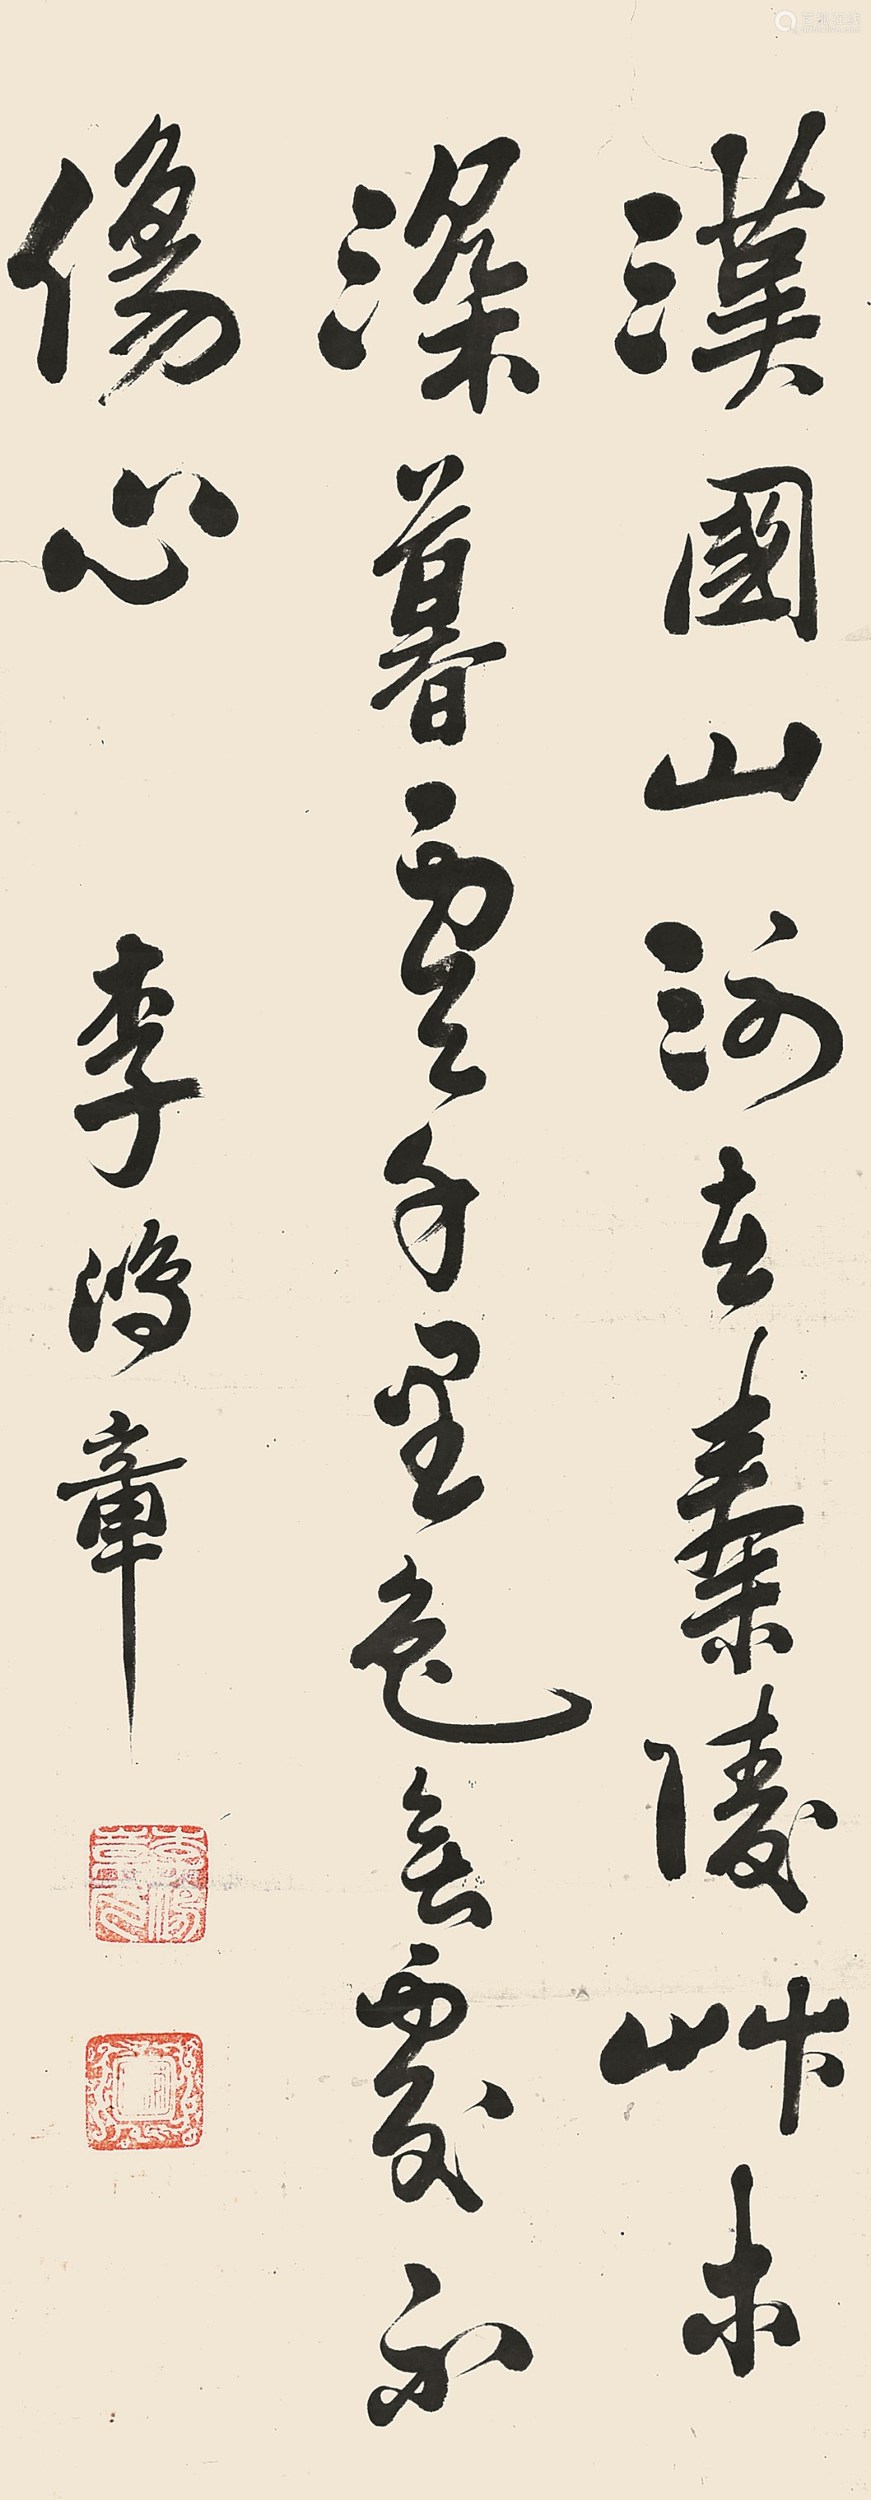 漢國山河在秦陵艸木
深暮雲千里色無處不
傷心
李鴻章